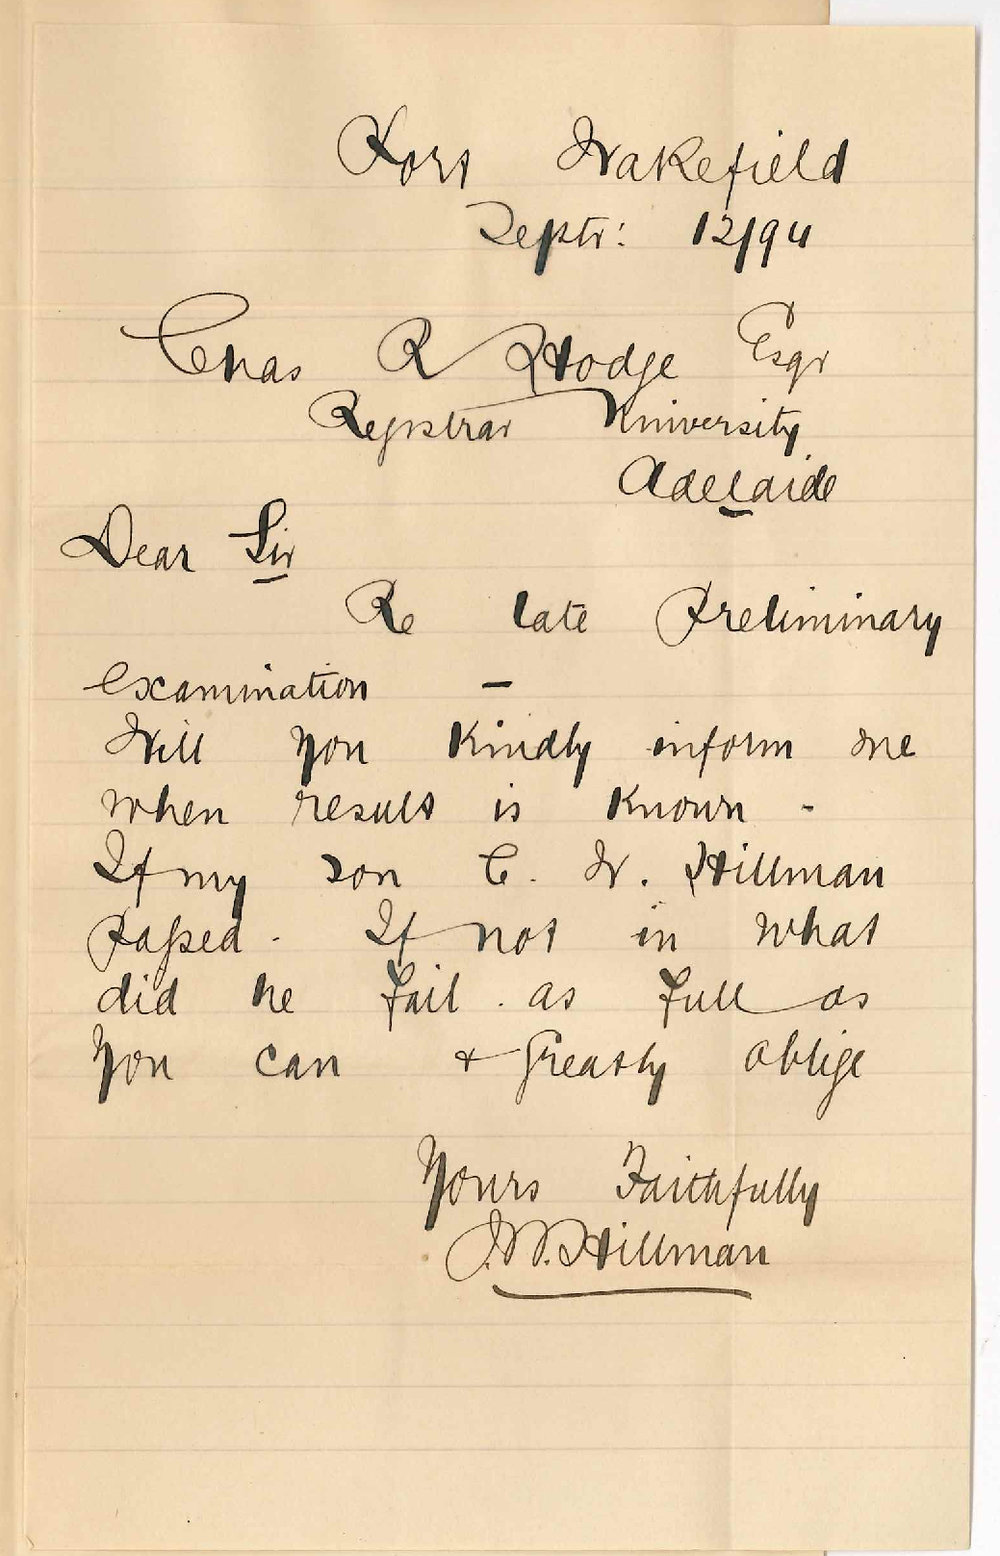 Port Wakefield
Septr: 12/94
Chas R Hodge Esqr
Registrar University
Adelaide
Dear Sir
Re late Preliminary
examination –
Will you kindly inform me
when result is known -
If my son C. W. Hillman
passed - If not in what
did he fail . as full as
you can & greatly oblige
Yours Faithfully
J.W. Hillman